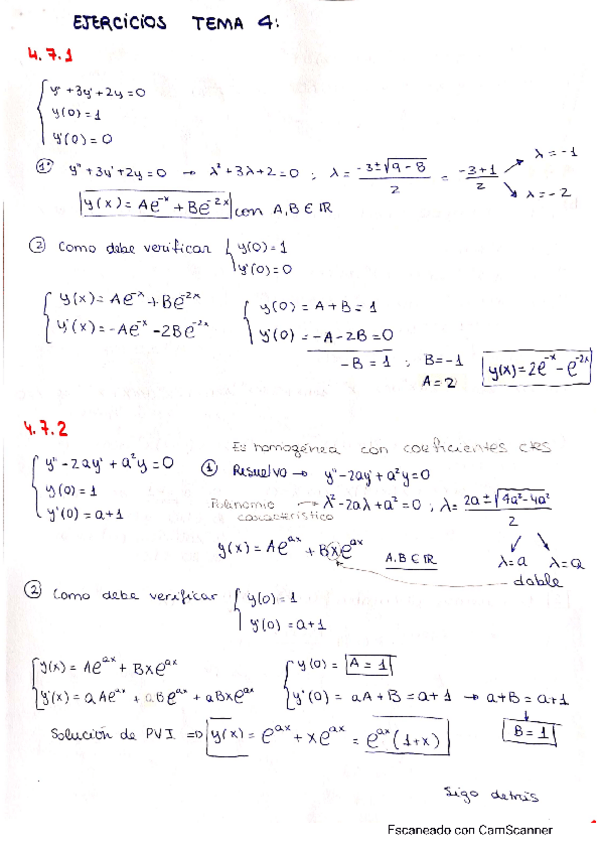 EJERCICIOS TEMA 4:
4.7.1
y''+3y'+2y=0
y(0)=1
y'(0)=0
① y''+3y'+2y=0 → λ²+3λ+2=0 ; λ = (-3±√(9-8))/2 = (-3±1)/2 ↗ λ=-1 ↘ λ=-2
y(x)=Ae^-x + Be^-2x con A,B ∈ ℝ
② Como debe verificar { y(0)=1
y'(0)=0
y(x)=Ae^-x + Be^-2x
y'(x)=-Ae^-x - 2Be^-2x
y(0)=A+B=1
y'(0)=-A-2B=0
-B=1 ; B=-1
A=2
y(x)=2e^-x - e^-2x
4.7.2
Es homogénea con coeficientes ctes
y''-2ay'+a²y=0
y(0)=1
y'(0)=a+1
① Resuelvo → y''-2ay'+a²y=0
Polinomio característico → λ²-2aλ+a²=0 ; λ = (2a±√(4a²-4a²))/2
λ=a λ=a
doble
y(x)=Ae^ax + Bxe^ax A,B ∈ ℝ
② Como debe verificar { y(0)=1
y'(0)=a+1
y(x)=Ae^ax + Bxe^ax
y'(x)=aAe^ax + Be^ax + aBxe^ax
y(0)=A=1
y'(0)=aA+B=a+1 → a+B=a+1
B=1
Solución de PVI ⇒ y(x)=e^ax + xe^ax = e^ax(1+x)
Sigo detrás
Escaneado con CamScanner